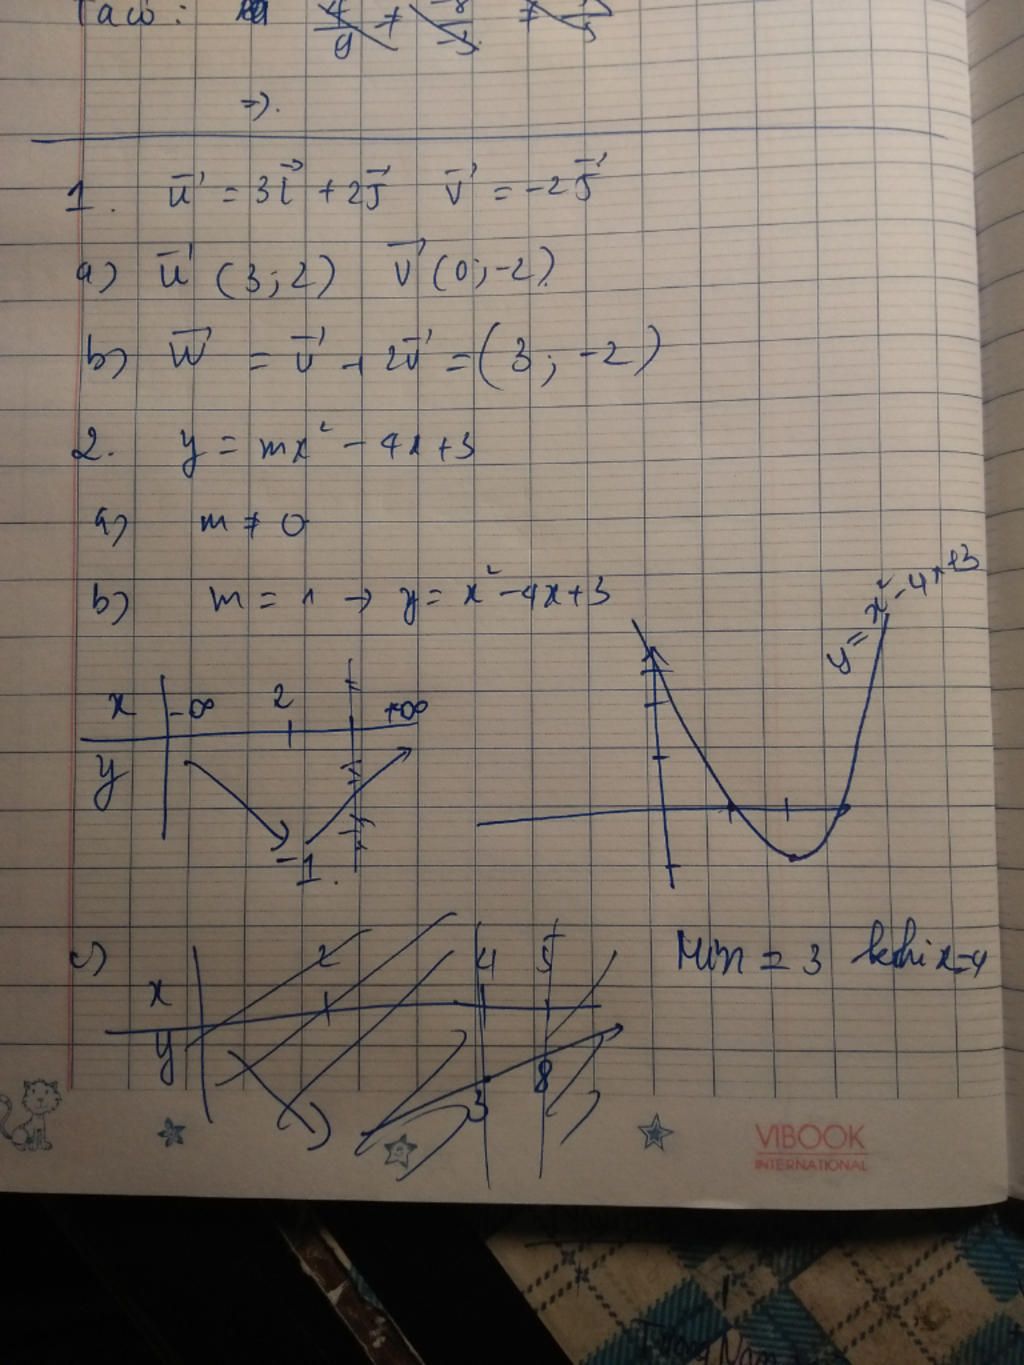 Ta có: 4/9 ≠ -8/ ≠
=>.
1. u⃗ = 3i⃗ + 2j⃗ v⃗ = -2j⃗
a) u⃗ (3; 2) v⃗ (0; -2)
b) w⃗ = v⃗ + 2v⃗ = (3; -2)
2. y = mx² - 4x + 3
a) m ≠ 0
b) m = 1 → y = x² - 4x + 3
y = x² - 4x + 3
x -∞ 2 +∞
y
-1.
c) 2 4 5 Min = 3 khi x = 4
x
y
3 8
VIBOOK
INTERNATIONAL